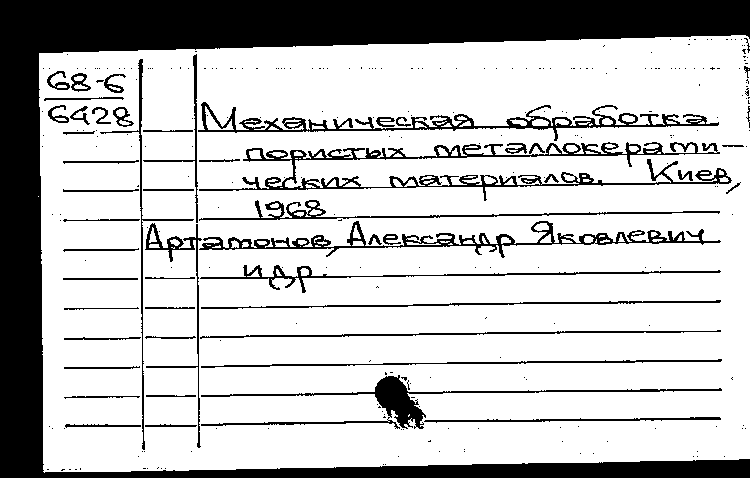 68-6
6428
Механическая обработка
пористых металлокерами-
ческих материалов. Киев,
1968
Артамонов, Александр Яковлевич
и др.